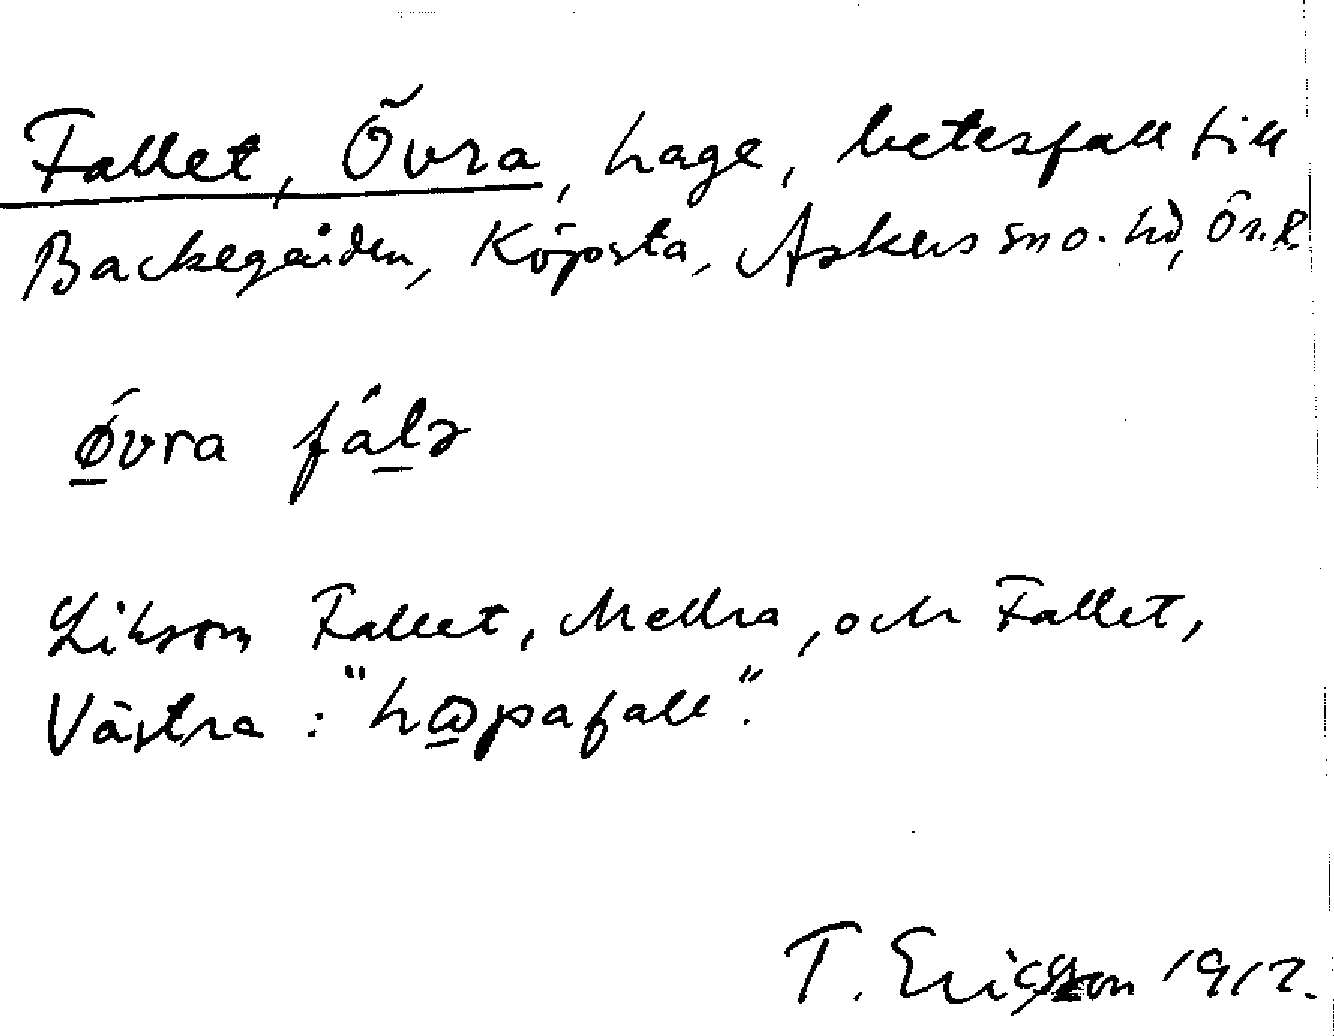 Fallet, Övra, hage, betesfall till
Backegården, Köpsta, Askers sn o. hd, Ör. l.
ǿ̱vra fáḻə
Liksom Fallet, Mellra, och Fallet,
Västra: "hω̱pafall".
T. Ericsson 1912.